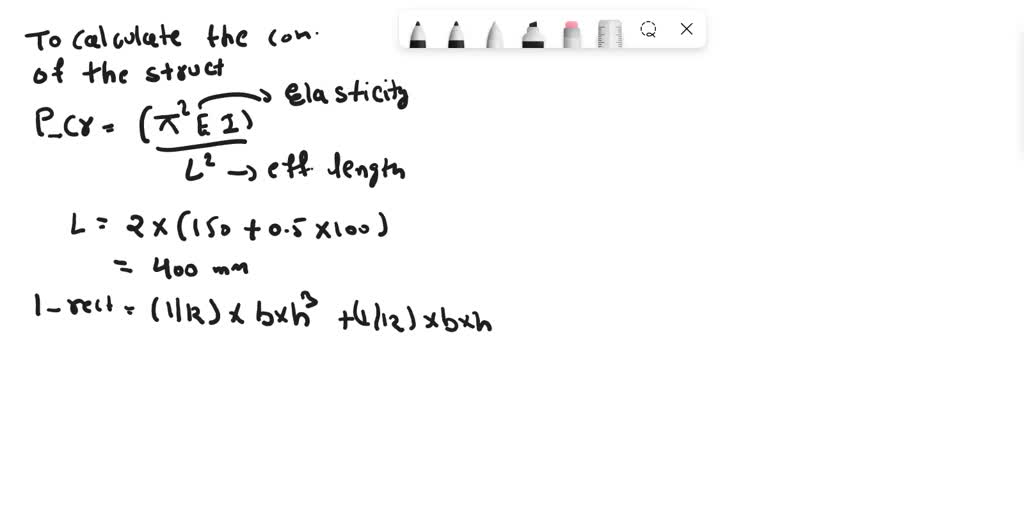 To calculate the con.
of the struct
P_cr = (π² E I) → Elasticity
L² → eff. length
L = 2 × (150 + 0.5 × 100)
= 400 mm
I-rect = (1/12) × b×h³ + (1/12) × b×h